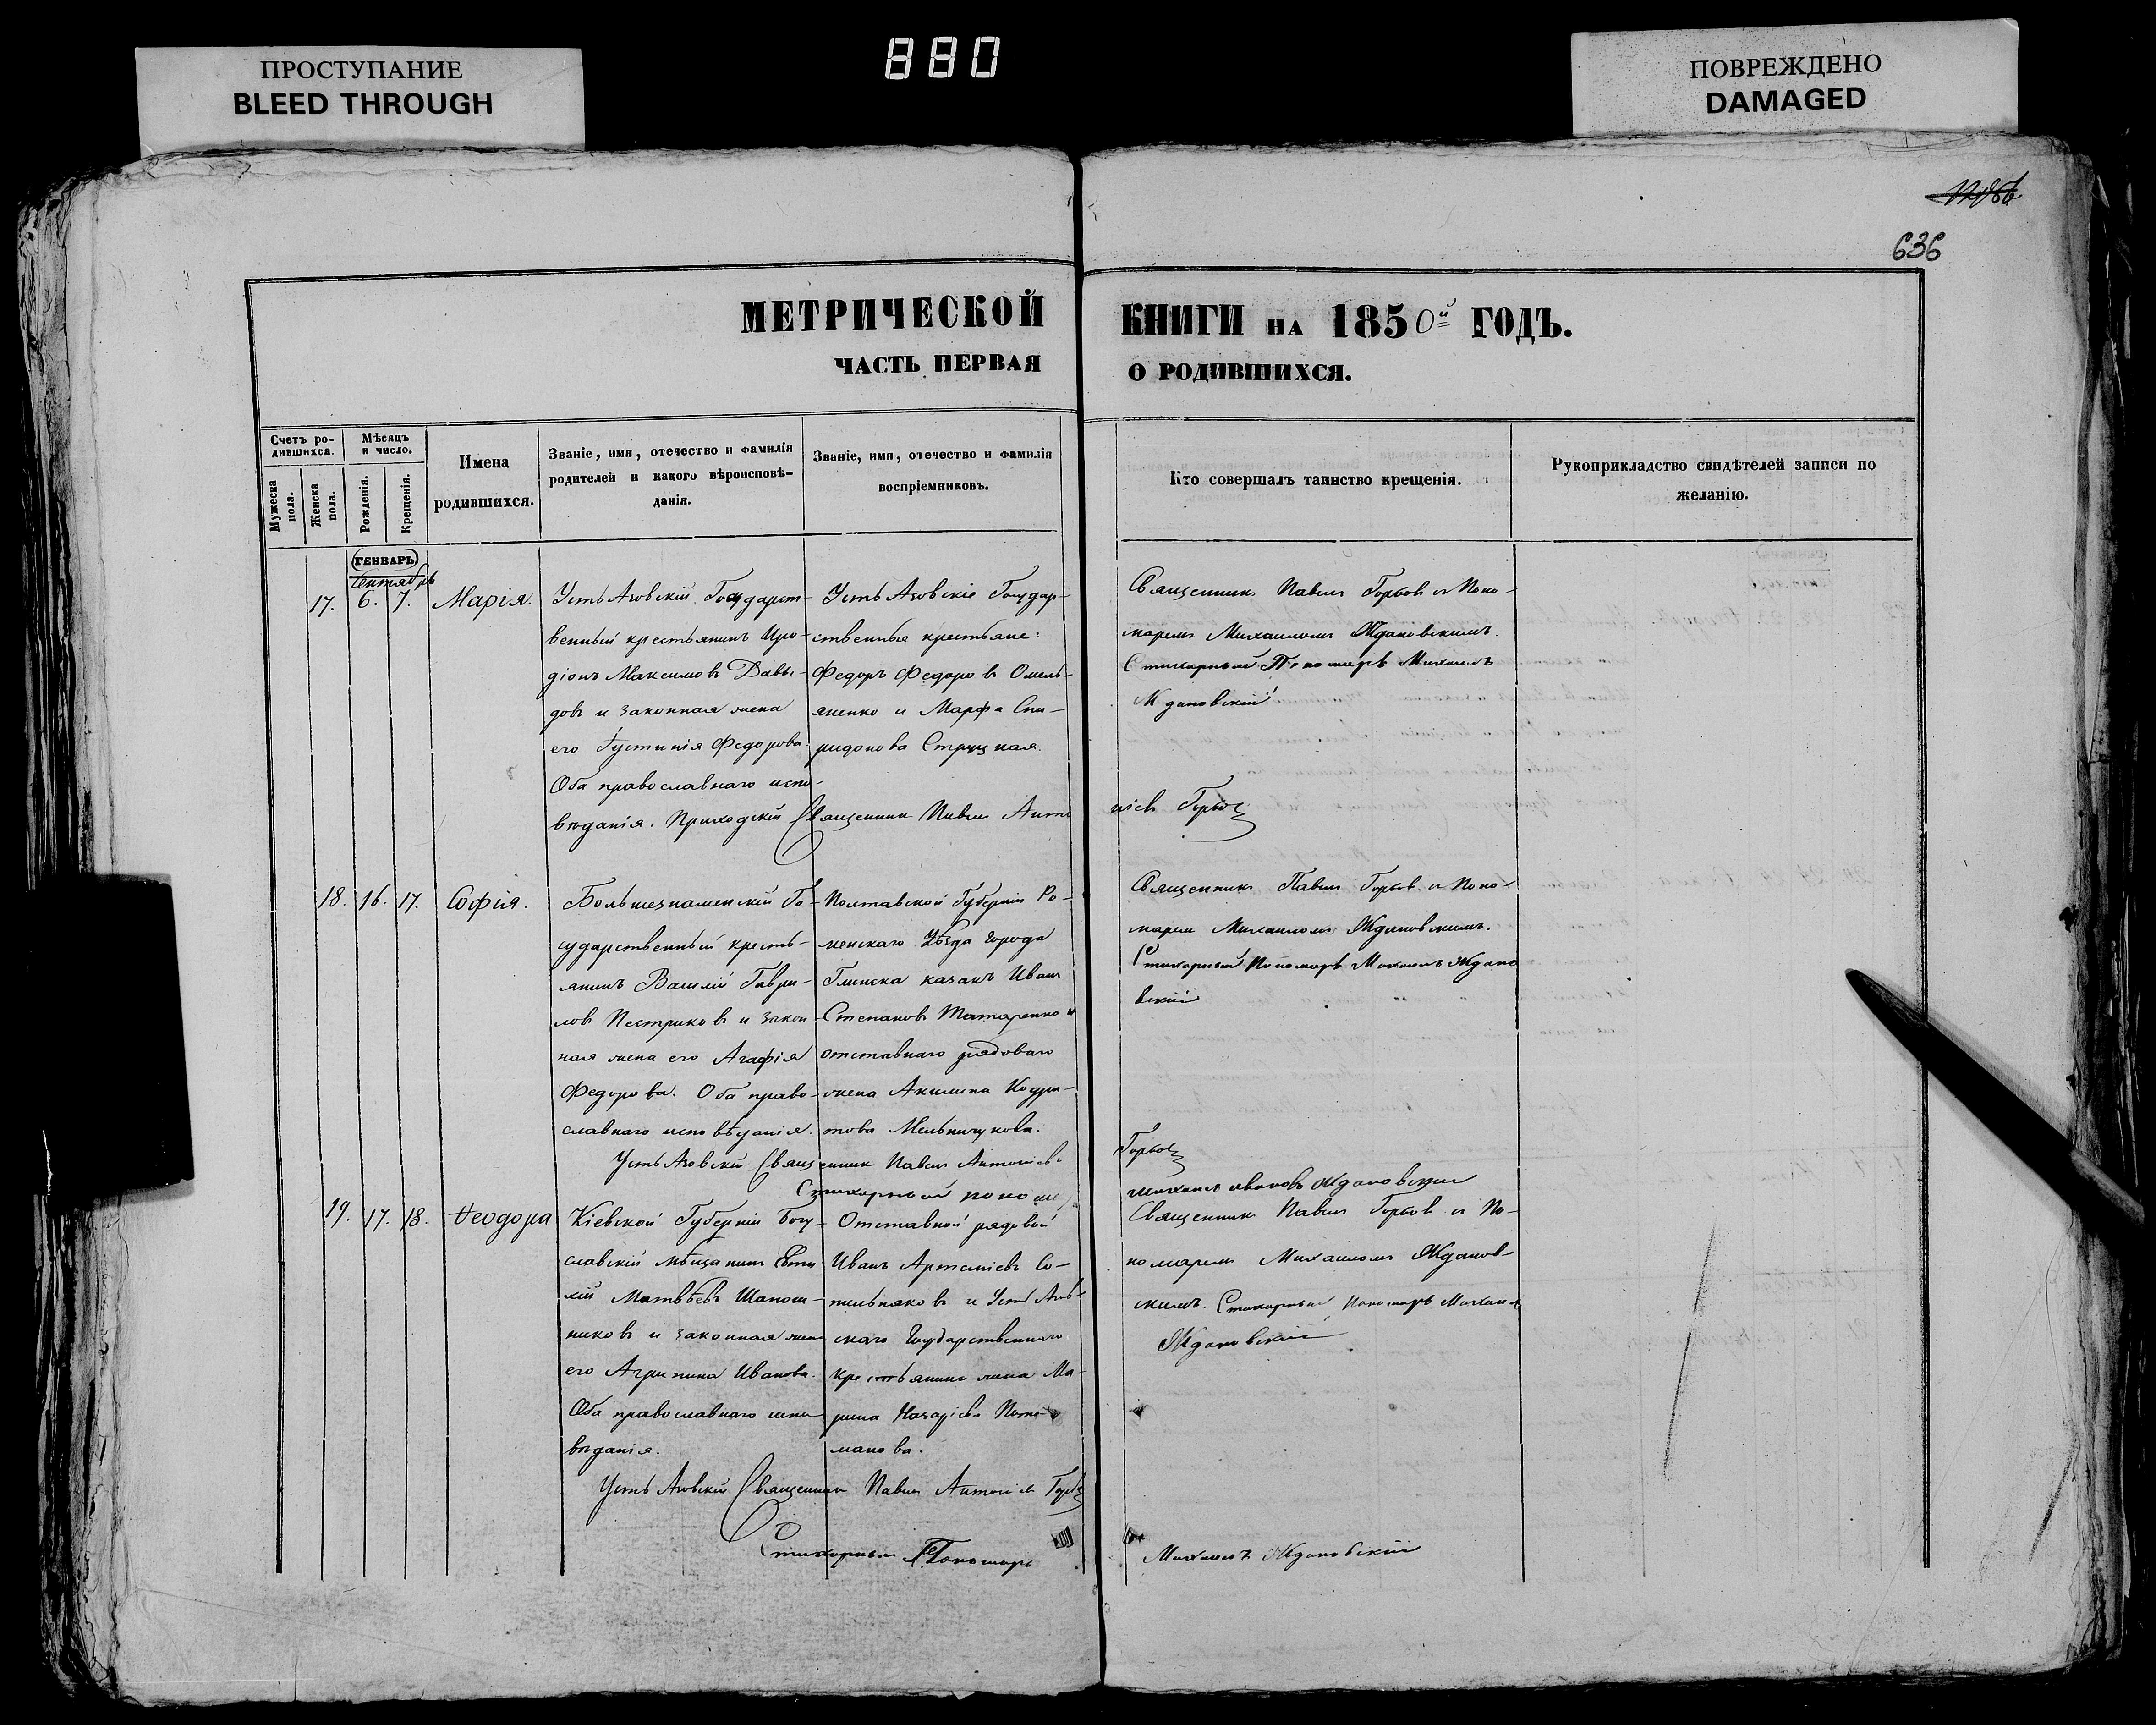 ПРОСТУПАНИЕ
BLEED THROUGH
880
ПОВРЕЖДЕНО
DAMAGED
636
МЕТРИЧЕСКОЙ КНИГИ НА 1850й ГОДЪ.
ЧАСТЬ ПЕРВАЯ О РОДИВШИХСЯ.
Счетъ ро-
дившихся.
Мужеска пола.
Женска пола.
Мѣсяцъ
и число.
Рожденія.
Крещенія.
Имена
родившихся.
Званіе, имя, отечество и фамилія
родителей и какого вѣроисповѣ-
данія.
Званіе, имя, отечество и фамилія
воспріемниковъ.
Кто совершалъ таинство крещенія.
Рукоприкладство свидѣтелей записи по
желанію.
ГЕНВАРЬ
Сентябрь
17. 6. 7. Марія.
Государст-
венный крестьянинъ Иро-
діонъ Максимовъ Давы-
довъ и законная жена
его Іустинія Федорова.
Оба православнаго испо-
вѣданія. Приходскій Священникъ Павелъ
Государ-
ственные крестьяне:
Федоръ Федоровъ Омель-
яненко и Марфа Спи-
ридонова
Священникъ Павелъ Горбов съ Поно-
марем Михаиломъ Ждановскимъ.
Стихарный Пономарь Михаилъ
Ждановскій
18. 16. 17. Софія.
Большезнаменскій Го-
сударственный кресть-
янинъ Василій Гаври-
ловъ Пестриковъ и закон-
ная жена его Агафія
Федорова. Оба право-
славнаго исповѣданія.
Полтавской Губерніи Ро-
менскаго Уѣзда города
Глинска казакъ Иван
Степановъ Татаренко и
отставнаго рядоваго
жена Акилина Кодра-
това Мельничукова.
Священникъ Павелъ Горбов съ Поно-
марем Михаилом Ждановскимъ.
Стихарный Пономарь Михаилъ Ждано
вскій
Священникъ Павелъ Антоніевъ
Стихарный
Михаилъ Ивановъ Ждановскій
19. 17. 18. Ѳеодора
Кіевской Губерніи Богу-
славскій мѣщанинъ Евти
хій Матвѣевъ Шапош-
никовъ и законная жена
его Агрипина Иванова.
Оба православнаго испо
вѣданія.
Отставной рядовой
Иванъ Артеміевъ Со-
тильняковъ и
скаго Государственнаго
крестьянина жена Ма-
рина Назаріева
Священникъ Павелъ Горбов съ По-
номарем Михаилом Жданов-
скимъ. Стихарный Пономарь Михаил
Ждановскій
Священникъ Павелъ
Стихарный Пономарь
Михаилъ Ждановскій